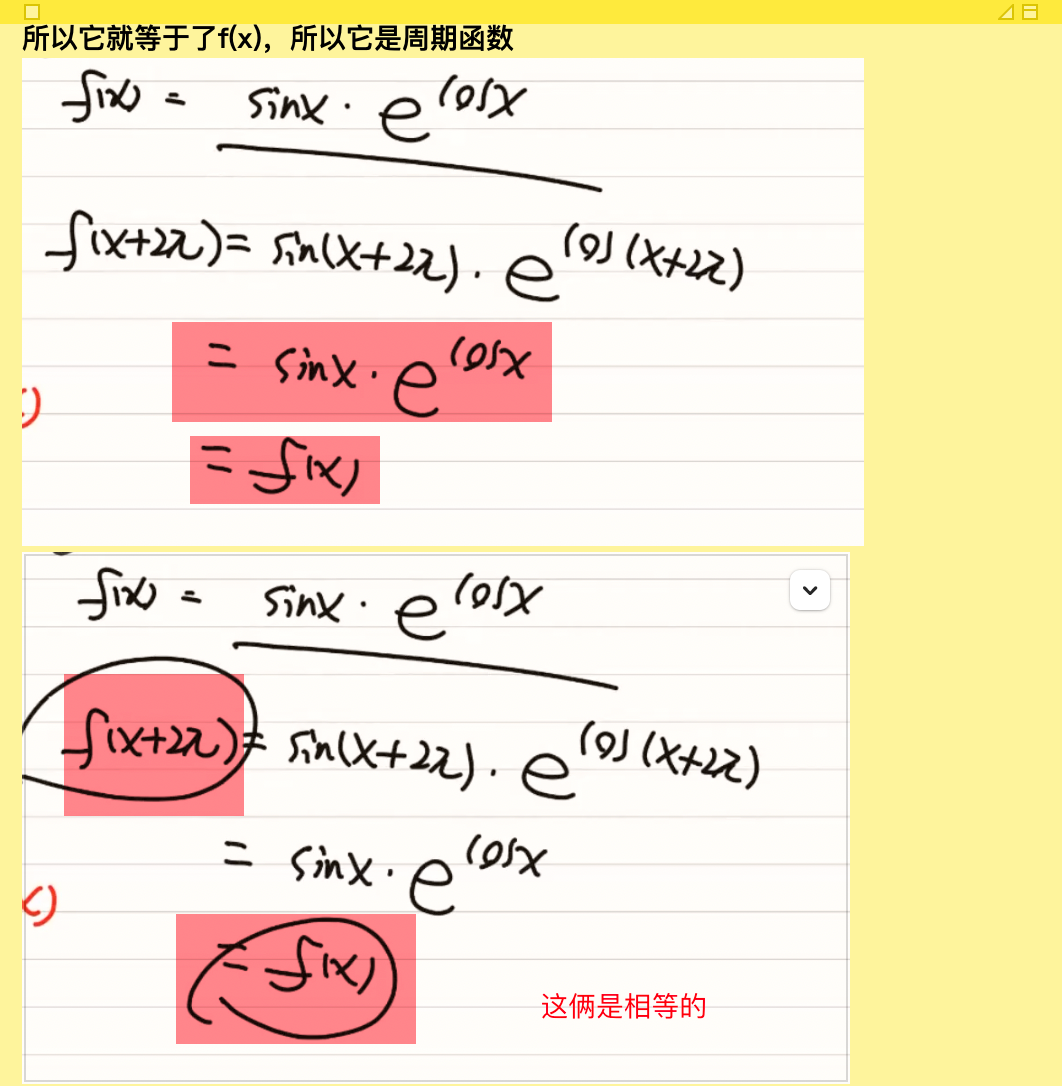 所以它就等于了f(x)，所以它是周期函数
f(x) = sinx · e^cosx
f(x+2π) = sin(x+2π) · e^cos(x+2π)
= sinx · e^cosx
)
= f(x)
f(x) = sinx · e^cosx
f(x+2π) = sin(x+2π) · e^cos(x+2π)
= sinx · e^cosx
= f(x)
这俩是相等的